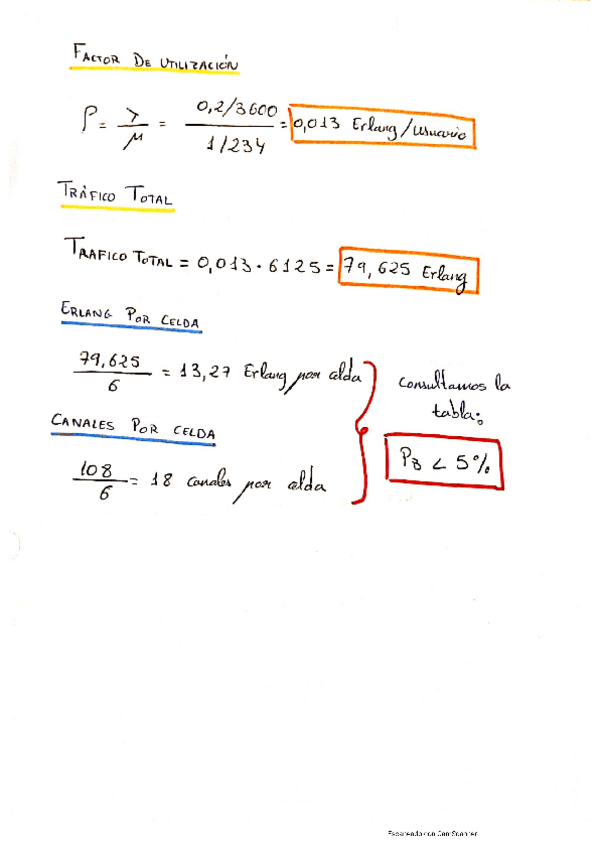 FACTOR DE UTILIZACIÓN
ρ = λ/μ = 0,2/3600 / 1/234 = 0,013 Erlang/usuario
TRÁFICO TOTAL
TRAFICO TOTAL = 0,013 · 6125 = 79,625 Erlang
ERLANG POR CELDA
79,625/6 = 13,27 Erlang por celda
CANALES POR CELDA
108/6 = 18 canales por celda
Consultamos la
tabla:
PB < 5%
Escaneado con CamScanner